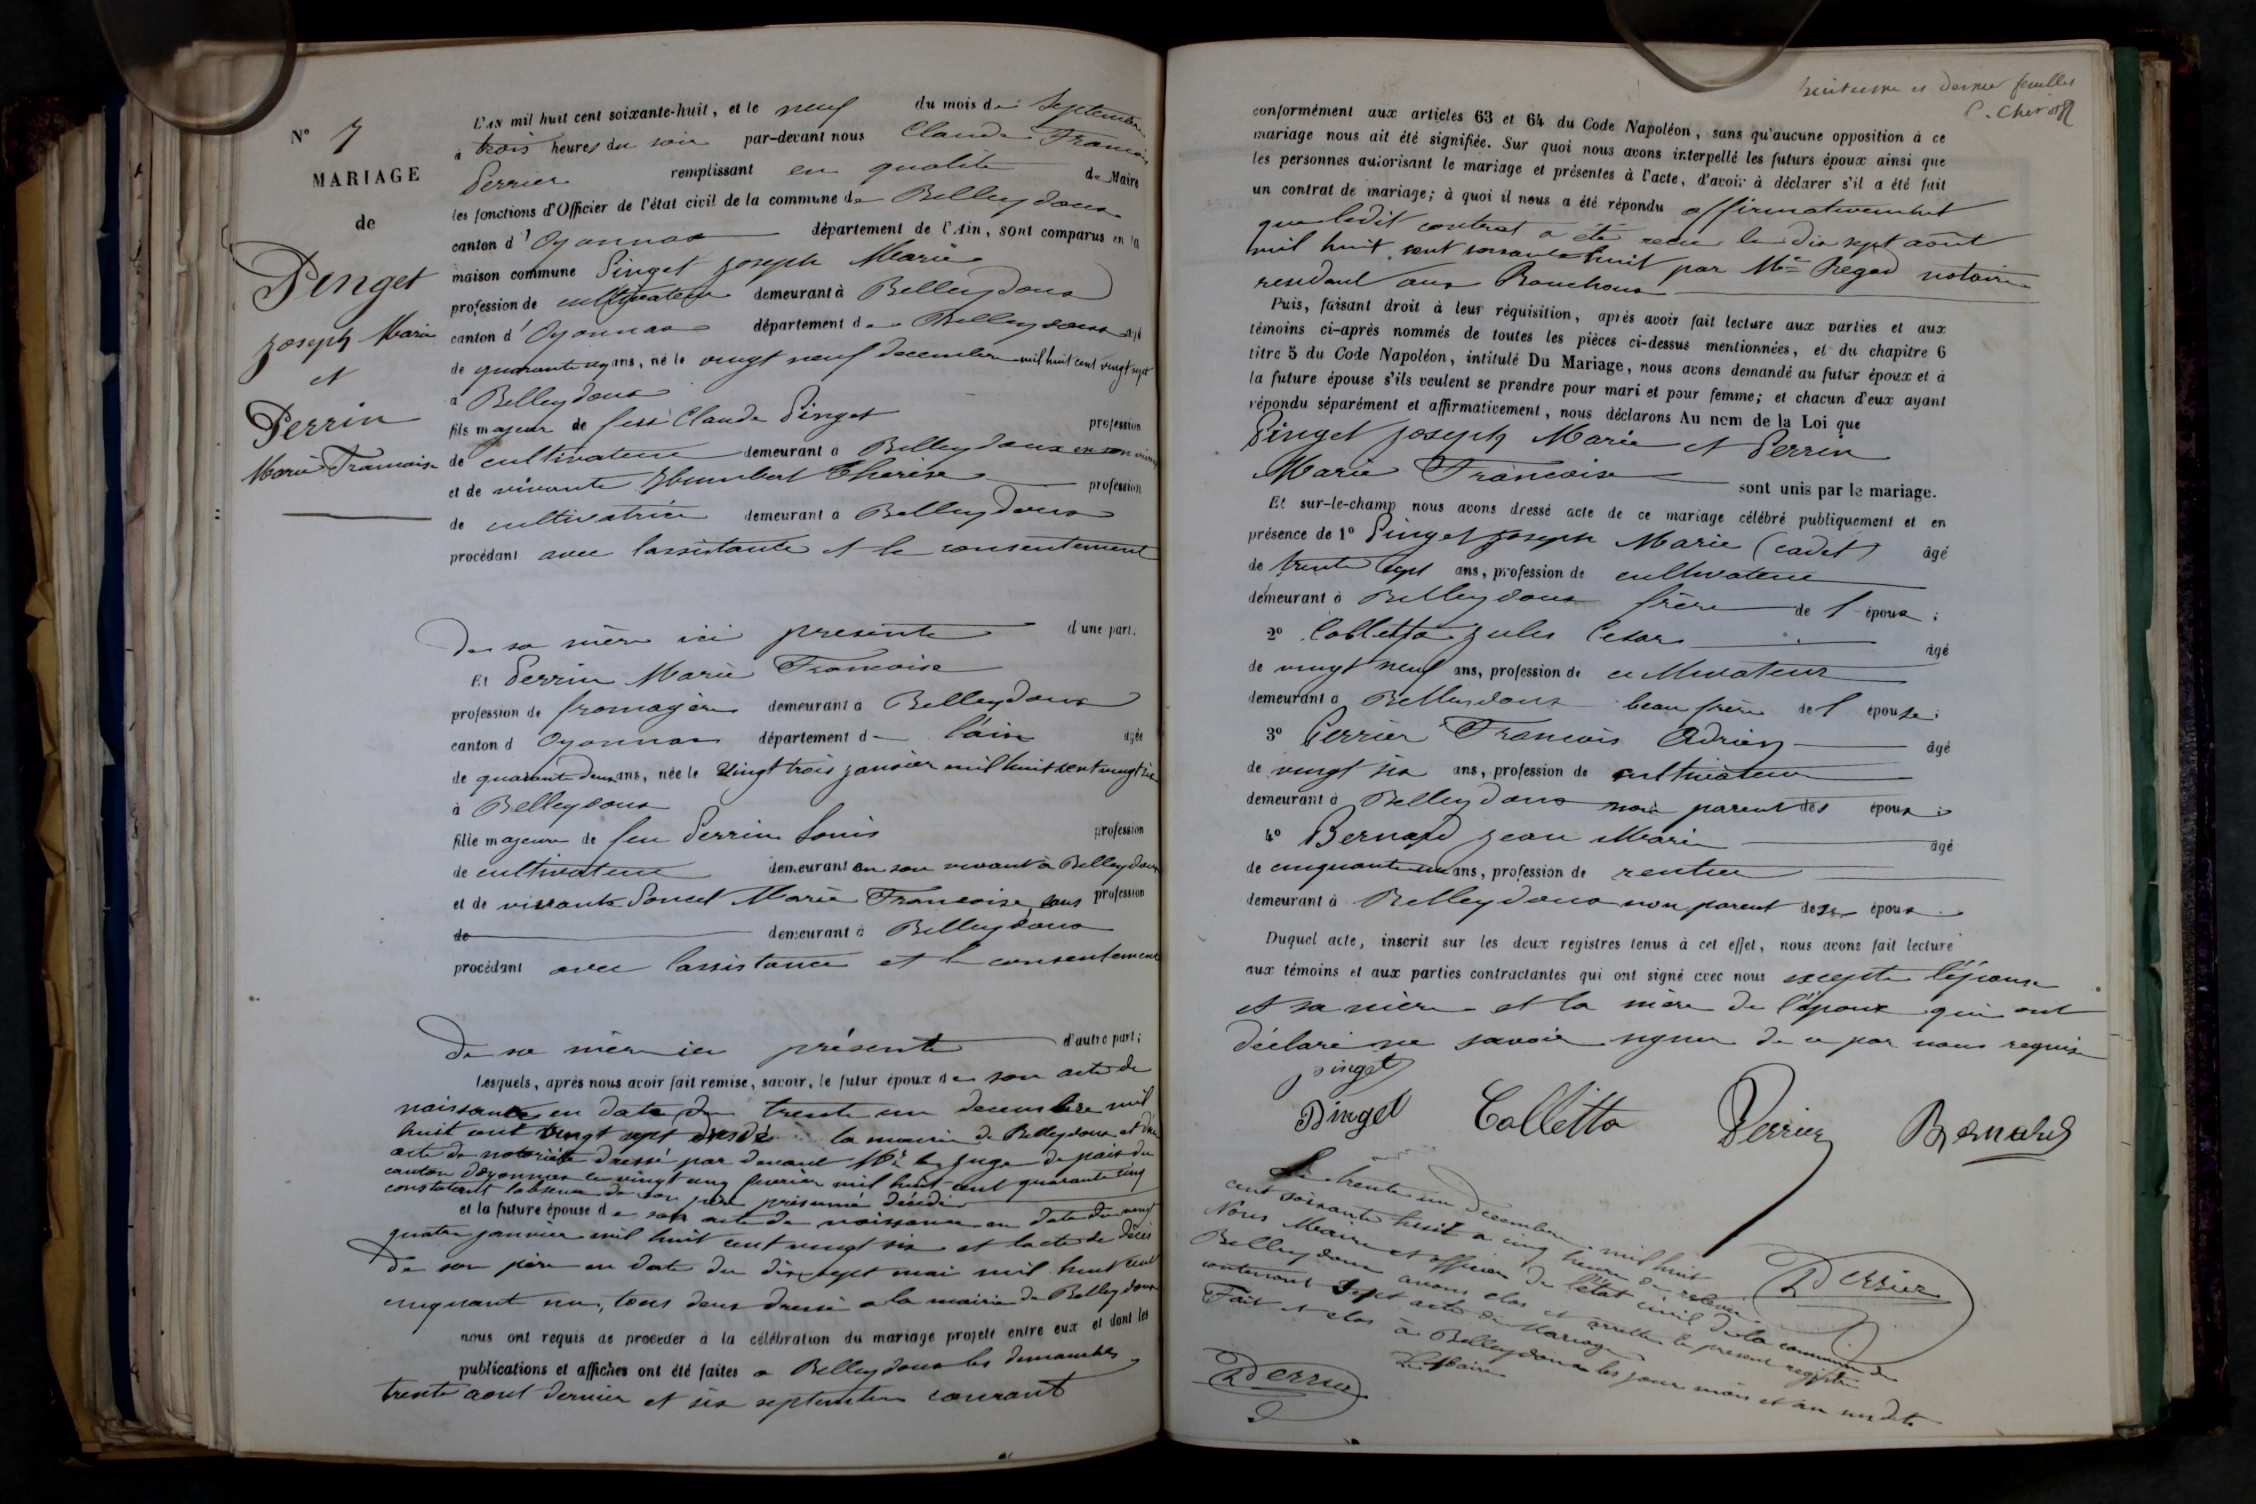 N° 7
MARIAGE
de
Pinget
Joseph Marie
et
Perrin
Marie Francoise
L'AN mil huit cent soixante-huit, et le neuf du mois de Septembre
à trois heures du soir par-devant nous Claude Francois
Perrier remplissant en qualité de Maire
les fonctions d'Officier de l'état civil de la commune de Belleydoux
canton d'Oyonnax département de l'Ain, sont comparus en la
maison commune Pinget Joseph Marie
profession de cultivateur demeurant à Belleydoux
canton d'Oyonnax département de Belleydoux âgé
de quarante ans, né le vingt neuf decembre mil huit cent vingt sept
à Belleydoux
fils majeur de feu Claude Pinget profession
de cultivateur demeurant à Belleydoux en son vivant
et de vivante Humbert Therèse profession
de cultivatrice demeurant à Belleydoux
procédant avec lassistante et le consentement
de sa mère ici presente d'une part.
Et Perrin Marie Francoise
profession de fromagère demeurant à Belleydoux
canton d Oyonnax département de l'ain âgée
de quarante deux ans, née le vingt trois janvier mil huit cent vingt six
à Belleydoux
fille majeure de feu Perrin Louis profession
de cultivateur demeurant en son vivant à Belleydoux
et de vivante Poncet Marie Francoise sans profession
de demeurant à Belleydoux
procédant avec lassistance et le consentement
de sa mère ici présente d'autre part;
Lesquels, après nous avoir fait remise, savoir, le futur époux de son acte de
naissance en date du trente un decembre mil
huit cent vingt sept dressé à la mairie de Belleydoux et d'un
acte de notoriété dressé par devant Mr le Juge de paix du
canton d'oyonnax le vingt cinq fevrier mil huit cent quarante cinq
constatent labsence de son père présumé décédé
et la future épouse de son acte de naissance en date du vingt
quatre janvier mil huit cent vingt six et lacte de décès
de son père en date du dix sept mai mil huit cent
cinquante un, tous deux dressé a la mairie de Belleydoux
nous ont requis de procéder à la célébration du mariage projeté entre eux et dont les
publications et affiches ont été faites a Belleydoux les dimanches
trente aout dernier et six septembre courant
huitieme et dernier feuillet
conformément aux articles 63 et 64 du Code Napoléon, sans qu'aucune opposition à ce
mariage nous ait été signifiée. Sur quoi nous avons interpellé les futurs époux ainsi que
les personnes autorisant le mariage et présentes à l'acte, d'avoir à déclarer s'il a été fait
un contrat de mariage; à quoi il nous a été répondu affirmativement
que ledit contrat a été recu le dix sept août
mil huit cent soixante huit par Me Regad notaire
residant aux Bouchoux
Puis, faisant droit à leur réquisition, après avoir fait lecture aux parties et aux
témoins ci-après nommés de toutes les pièces ci-dessus mentionnées, et du chapitre 6
titre 5 du Code Napoléon, intitulé Du Mariage, nous avons demandé au futur époux et à
la future épouse s'ils veulent se prendre pour mari et pour femme; et chacun d'eux ayant
répondu séparément et affirmativement, nous déclarons Au nom de la Loi que
Pinget Joseph Marie et Perrin
Marie Francoise sont unis par le mariage.
Et sur-le-champ nous avons dressé acte de ce mariage célébré publiquement et en
présence de 1° Pinget Joseph Marie (cadet) âgé
de trente sept ans, profession de cultivateur
demeurant à Belleydoux frère de l époux;
2° Colletta Jules Cesar âgé
de vingt neuf ans, profession de cultivateur
demeurant à Belleydoux beau frère de l épouse;
3° Perrier Francois Adrien âgé
de vingt six ans, profession de cultivateur
demeurant à Belleydoux non parent des époux;
4° Bernard Jean Marie âgé
de cinquante un ans, profession de rentier
demeurant à Belleydoux non parent des époux.
Duquel acte, inscrit sur les deux registres tenus à cet effet, nous avons fait lecture
aux témoins et aux parties contractantes qui ont signé avec nous excepte l'épouse
et sa mère et la mère de l'époux qui ont
déclaré ne savoir signer de ce par nous requise
pinget
Pinget Colletta Perrier Bernard
Le trente un Decembre mil huit
cent soixante huit a cinq heures de relevée
Nous Maire et officier de l'état civil de la commune de
Belleydoux avons clos et arrêté le present registre
contenant sept actes de Mariage
Fait et clos à Belleydoux les jour mois et an susdits
Le Maire
Perrier
Perrier